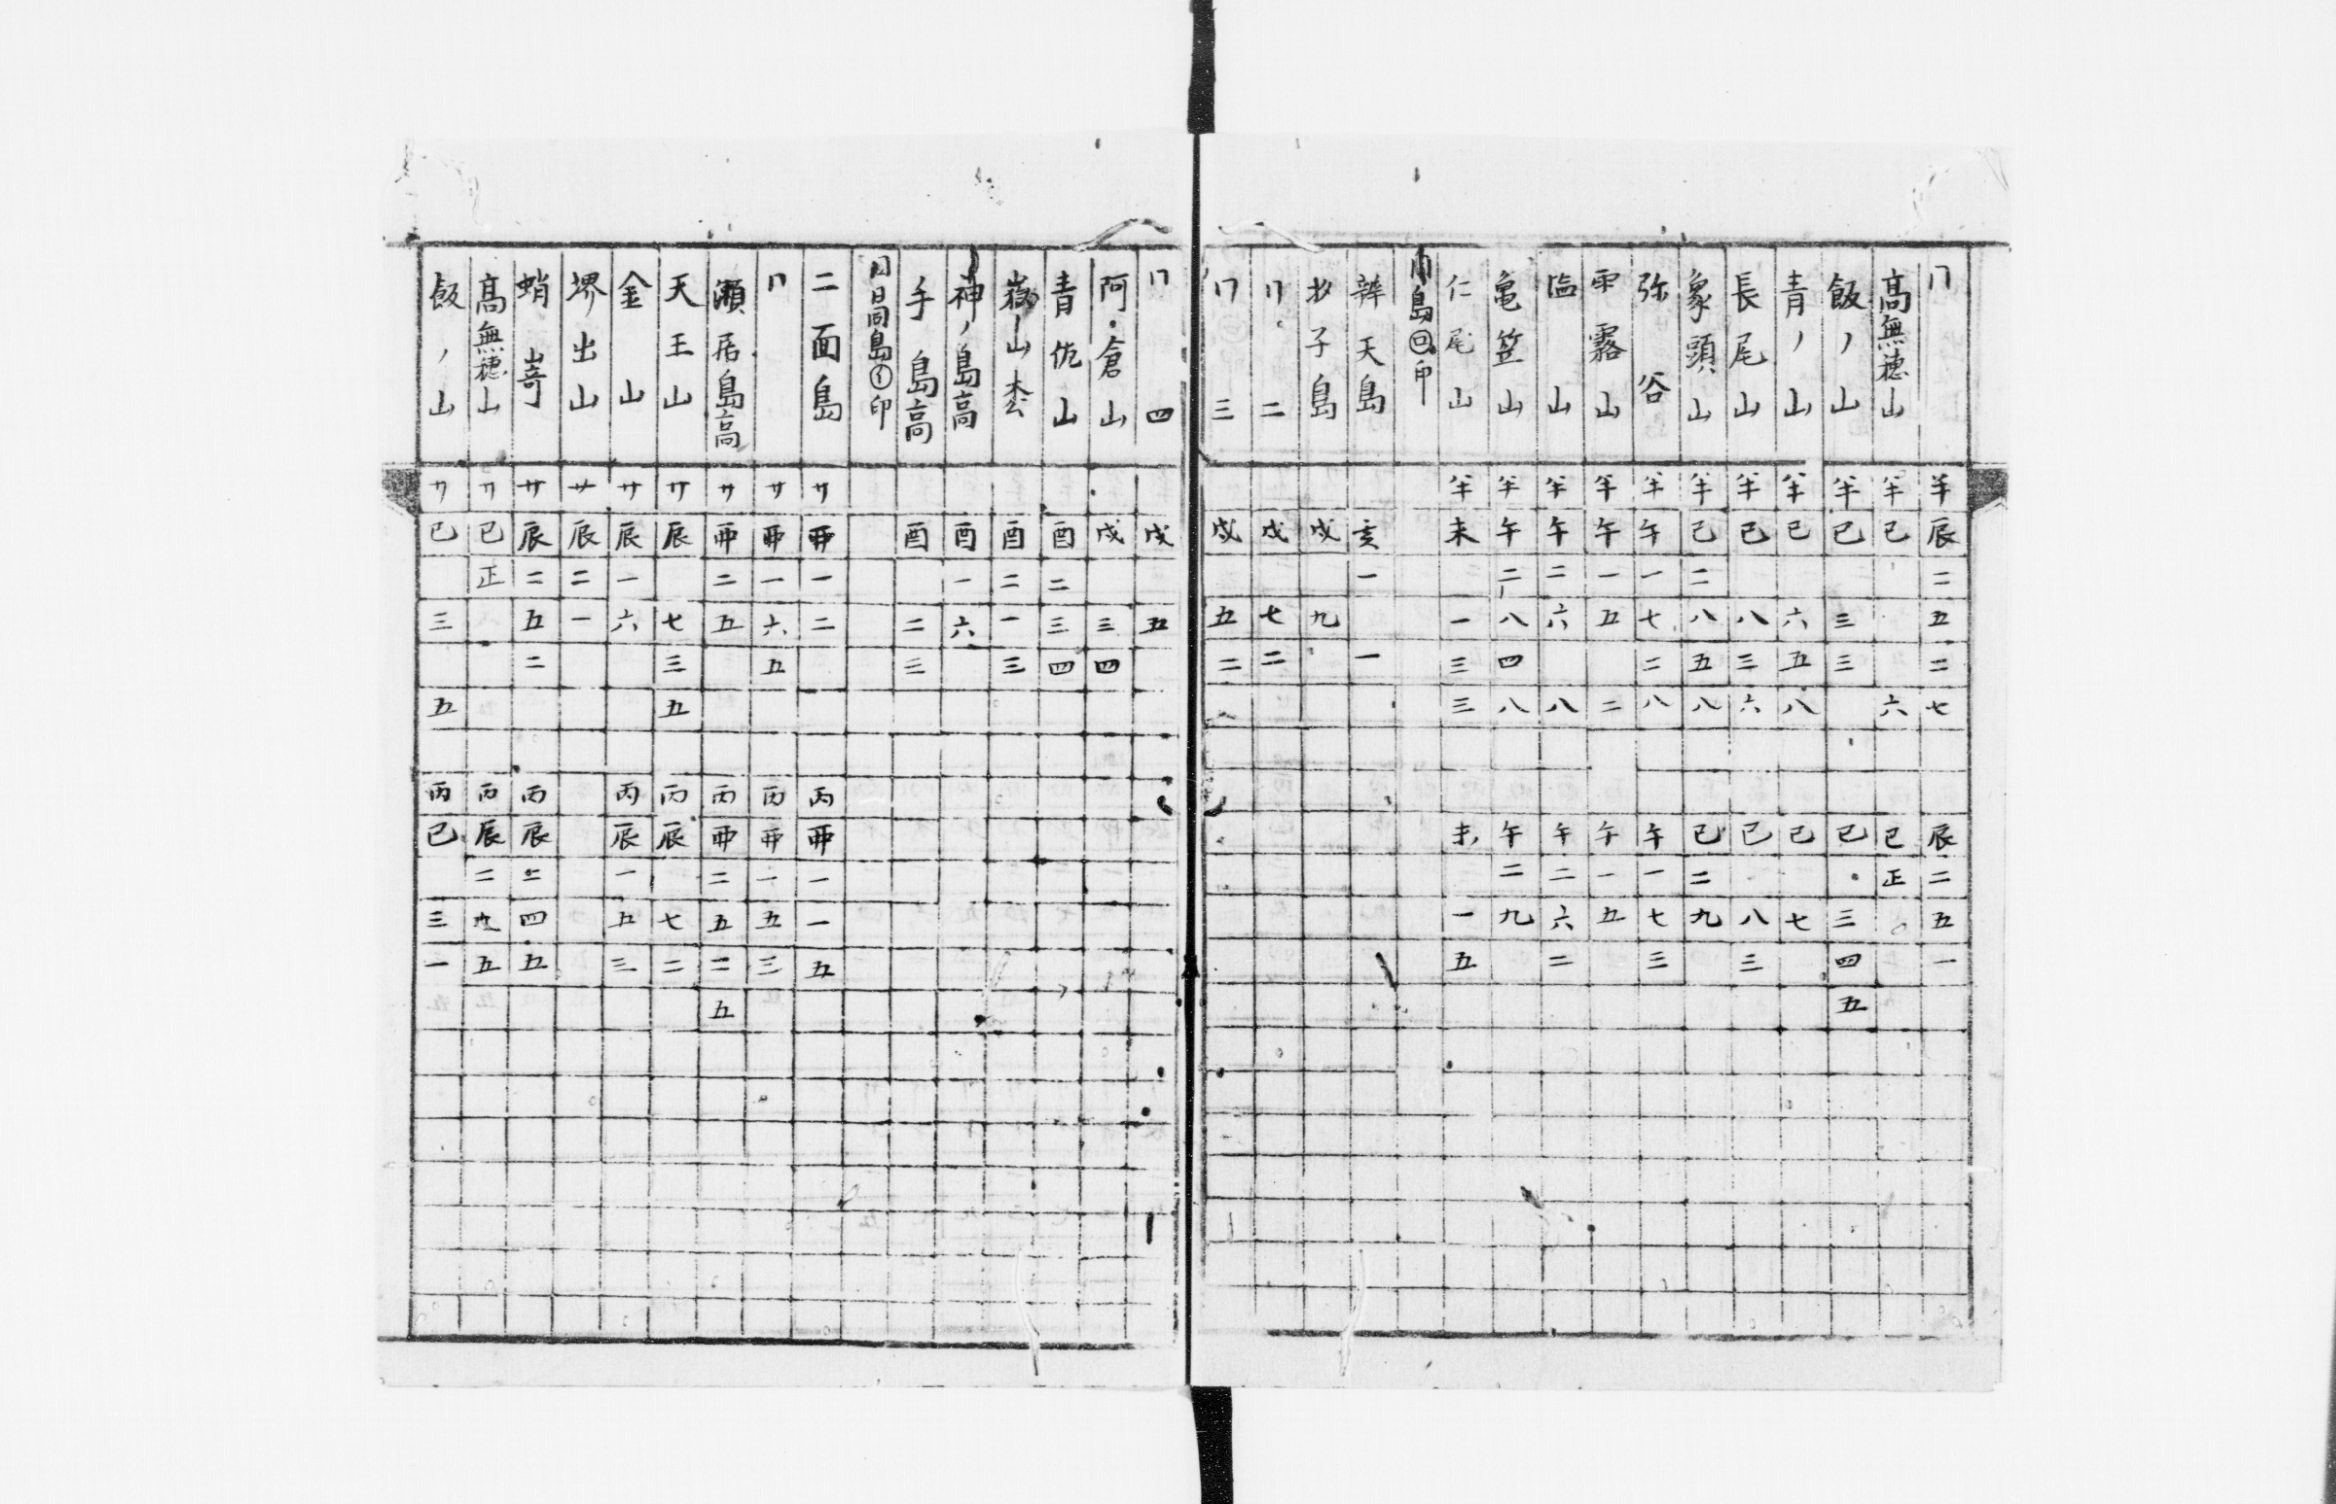 〃 半 辰 二 五 二 七 辰 二 五 一
高無穂山 半 巳 六 巳 正
飯ノ山 半 巳 三 三 巳 三 四 五
青ノ山 半 巳 六 五 八 巳 七
長尾山 半 巳 八 三 六 巳 八 三
象頭山 半 巳 二 八 五 八 巳 二 九
弥谷 半 午 一 七 二 八 午 一 七 三
雨霧山 半 午 一 五 二 午 一 五
山 半 午 二 六 八 午 二 六 二
亀笠山 半 午 二 八 四 八 午 二 九
仁尾山 半 未 一 三 三 未 一 五
島㊁印
辨天島 亥 一 一
子島 戌 九
〃二 戌 七 二
〃三 戌 五 二
〃四 戌 五
阿倉山 戌 三 四
青佐山 酉 二 三 四
山 酉 二 一 三
神ノ島高 酉 一 六
手島高 酉 二 三
同日同島①印
二面島 卅 一 二 丙 一 一 五
〃 一 六 五 丙 一 五 三
瀬居島高 二 五 丙 二 五 二 五
天王山 辰 七 三 五 丙 辰 七 二
金山 辰 一 六 丙 辰 一 五 三
堺出山 辰 二 一
蛸嵜 辰 二 五 二 丙 辰 二 四 五
高無穂山 巳 正 丙 辰 二 九 五
飯ノ山 巳 三 五 丙 巳 三 一